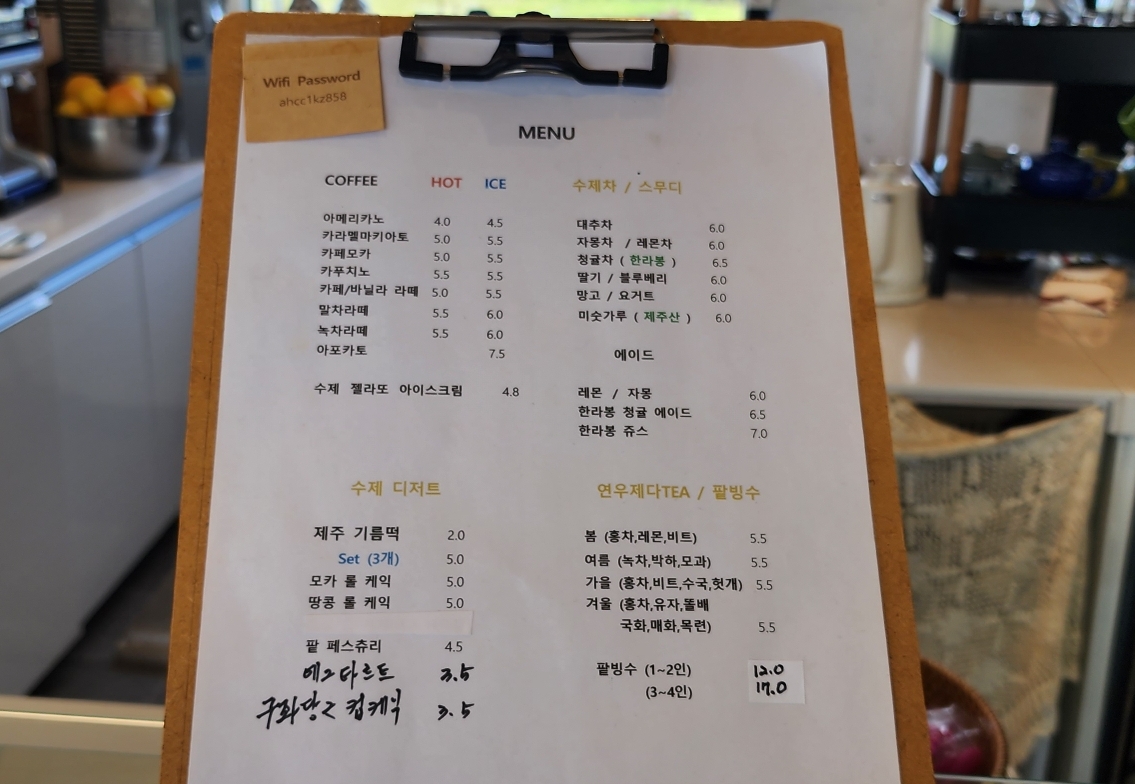 Wifi Password
ahcc1kz858
MENU
COFFEE HOT ICE
아메리카노 4.0 4.5
카라멜마키아토 5.0 5.5
카페모카 5.0 5.5
카푸치노 5.5 5.5
카페/바닐라 라떼 5.0 5.5
말차라떼 5.5 6.0
녹차라떼 5.5 6.0
아포카토 7.5
수제 젤라또 아이스크림 4.8
수제차 / 스무디
대추차 6.0
자몽차 / 레몬차 6.0
청귤차 ( 한라봉 ) 6.5
딸기 / 블루베리 6.0
망고 / 요거트 6.0
미숫가루 ( 제주산 ) 6.0
에이드
레몬 / 자몽 6.0
한라봉 청귤 에이드 6.5
한라봉 쥬스 7.0
수제 디저트
제주 기름떡 2.0
Set (3개) 5.0
모카 롤 케익 5.0
땅콩 롤 케익 5.0
팥 페스츄리 4.5
에그타르트 3.5
컵케익 3.5
연우제다TEA / 팥빙수
봄 (홍차,레몬,비트) 5.5
여름 (녹차,박하,모과) 5.5
가을 (홍차,비트,수국,헛개) 5.5
겨울 (홍차,유자,돌배
국화,매화,목련) 5.5
팥빙수 (1~2인) 12.0
(3~4인) 17.0